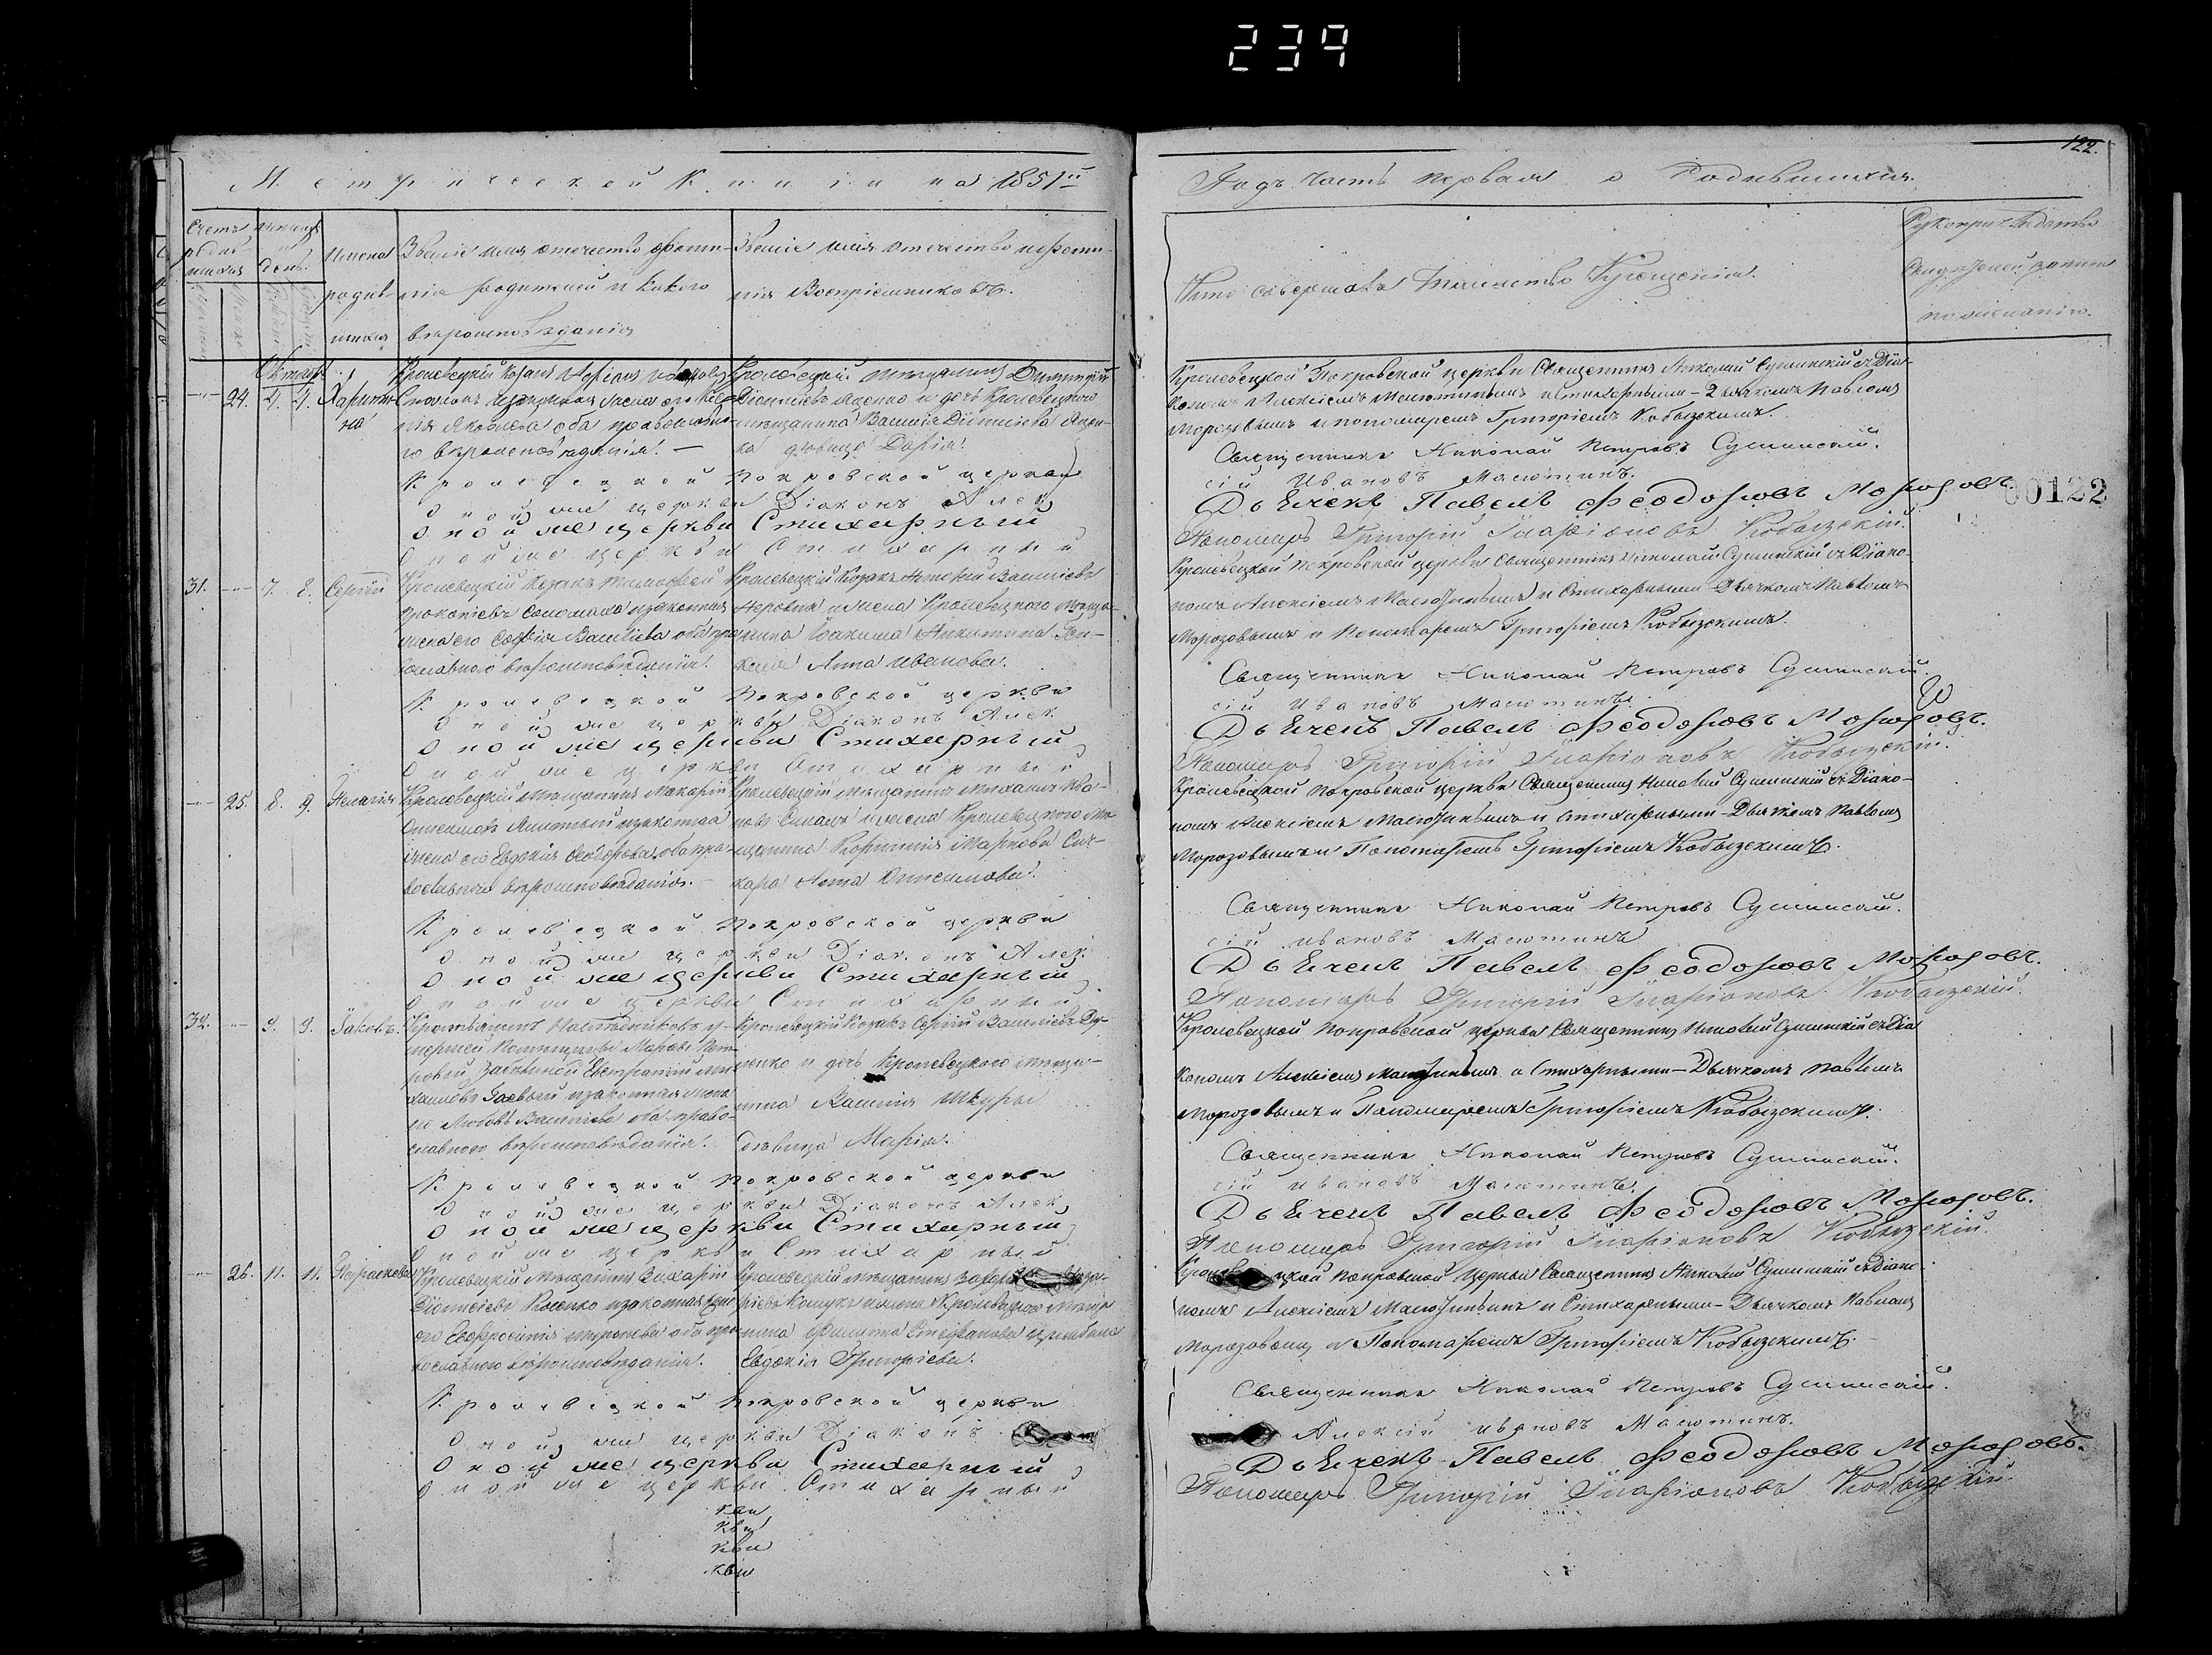 239
122.
Метрической Книги на 1851й
Годъ Часть первая о Родившихся.
Счетъ родив шихся
Мѣсяцъ и день.
Имена родив шихся
Званіе имя отечество и фами-
лія родителей и какого
вѣроисповѣданія
Званіе имя отечество и фами-
лія Воспріемниковъ.
Кто совершалъ Таинство Крещенія.
Рукоприкладство
Свидѣтелей записи
по желанію.
Октяб.
24. 4. 4. Харити
на
Кролевецкій Козакъ
законная жена его
нія Яковлева оба православна-
го вѣроисповѣданія. —
Кролевецкій мѣщанинъ Димитрій
Діонисіевъ Яценко и дочь Кролевецкого
мѣщанина Василія Діонисіева Яцен-
ка дѣвица Дарія.
Кролевецкой Покровской церкви Священникъ Николай Сушинскій съ Діа-
кономъ Алексіемъ Масютинымъ и Стихарными - Дьячкомъ Павломъ
Морозовымъ и пономаремъ Григоріемъ Кобызскимъ.
Кролевецкой Покровской церкви Священникъ Николай Петровъ Сушинскій.
оной же церкви Діаконъ Алек сій Ивановъ Масютинъ.
оной же церкви Стихарный Дьячекъ Павелъ Феодоровъ Морозовъ.
оной же церкви Стихарный Пономарь Григорій Иларіоновъ Кобызскій.
00122
31. 7. 8. Сергій
Кролевецкій Козакъ Тимофей
Прокопіевъ Соломаха и законная
жена его Софія Василіева оба пра-
вославного вѣроисповѣданія.
Кролевецкій Козакъ Антоній Василіевъ
и жена Кролевецкого Мѣща-
нина Іоакима Никитина
Анна Иванова.
Кролевецкой Покровской церкви Священникъ Николай Сушинскій съ Діако-
номъ Алексіемъ Масютинымъ и Стихарными - Дьячкомъ Павломъ
Морозовымъ и Пономаремъ Григоріемъ Кобызскимъ.
Кролевецкой Покровской церкви Священникъ Николай Петровъ Сушинскій.
оной же церкви Діаконъ Алек сій Ивановъ Масютинъ.
оной же церкви Стихарный Дьячекъ Павелъ Феодоровъ Морозовъ.
оной же церкви Стихарный Пономарь Григорій Иларіоновъ Кобызскій.
25. 8. 9. Пелагія
Кролевецкій Мѣщанинъ Макарій
Онисимовъ и законная
жена его Евдокія Феодорова оба пра-
вославного вѣроисповѣданія. —
Кролевецкій Мѣщанинъ Михаилъ Ива-
новъ и жена Кролевецкого Мѣ
щанина Корнилія Маркова
Анна Онисимова.
Кролевецкой Покровской церкви Священникъ Николай Сушинскій съ Діако-
номъ Алексіемъ Масютинымъ и Стихарными - Дьячкомъ Павломъ
Морозовымъ и Пономаремъ Григоріемъ Кобызскимъ.
Кролевецкой Покровской церкви Священникъ Николай Петровъ Сушинскій.
оной же церкви Діаконъ Алек. сій Ивановъ Масютинъ
оной же церкви Стихарный Дьячекъ Павелъ Феодоровъ Морозовъ.
оной же церкви Стихарный Пономарь Григорій Иларіоновъ Кобызскій.
32. 9. 9. Іаковъ.
Крестьянинъ Наслѣдниковъ у-
мершей Помѣщицы Марѳы Пет-
ровой Евстратій Ми
хайловъ Гаевый и законная жена
его Любовь Василіева оба право-
славного вѣроисповѣданія.
Кролевецкій Козакъ Сергій Василіевъ
и дочь Кролевецкого мѣща-
нина Василія Шкуры
дѣвица Марія.
Кролевецкой Покровской церкви Священникъ Николай Сушинскій съ Діа
кономъ Алексіемъ Масютинымъ и Стихарными - Дьячкомъ Павломъ
Морозовымъ и Пономаремъ Григоріемъ Кобызскимъ.
Кролевецкой Покровской церкви Священникъ Николай Петровъ Сушинскій.
оной же церкви Діаконъ Алек сій Ивановъ Масютинъ.
оной же церкви Стихарный Дьячекъ Павелъ Феодоровъ Морозовъ.
оной же церкви Стихарный Пономарь Григорій Иларіоновъ Кобызскій.
26. 11. 11. Параскева
Кролевецкій Мѣщанинъ Захарій
Діонисіевъ и законная жена
его Евфросинія Миронова оба пра-
вославного вѣроисповѣданія.
Кролевецкій мѣщанинъ
и жена Кролевецкого Мѣща
нина Филиппа Стефанова
Евдокія Григоріева.
Кролевецкой Покровской Церкви Священникъ Николай Сушинскій съ Діако
номъ Алексіемъ Масютинымъ и Стихарными - Дьячкомъ Павломъ
Морозовымъ и Пономаремъ Григоріемъ Кобызскимъ.
Кролевецкой Покровской церкви Священникъ Николай Петровъ Сушинскій.
оной же церкви Діаконъ Алексій Ивановъ Масютинъ.
оной же церкви Стихарный Дьячекъ Павелъ Феодоровъ Морозовъ.
оной же церкви Стихарный Пономарь Григорій Иларіоновъ Кобызскій.
кви
кви
кви
кви